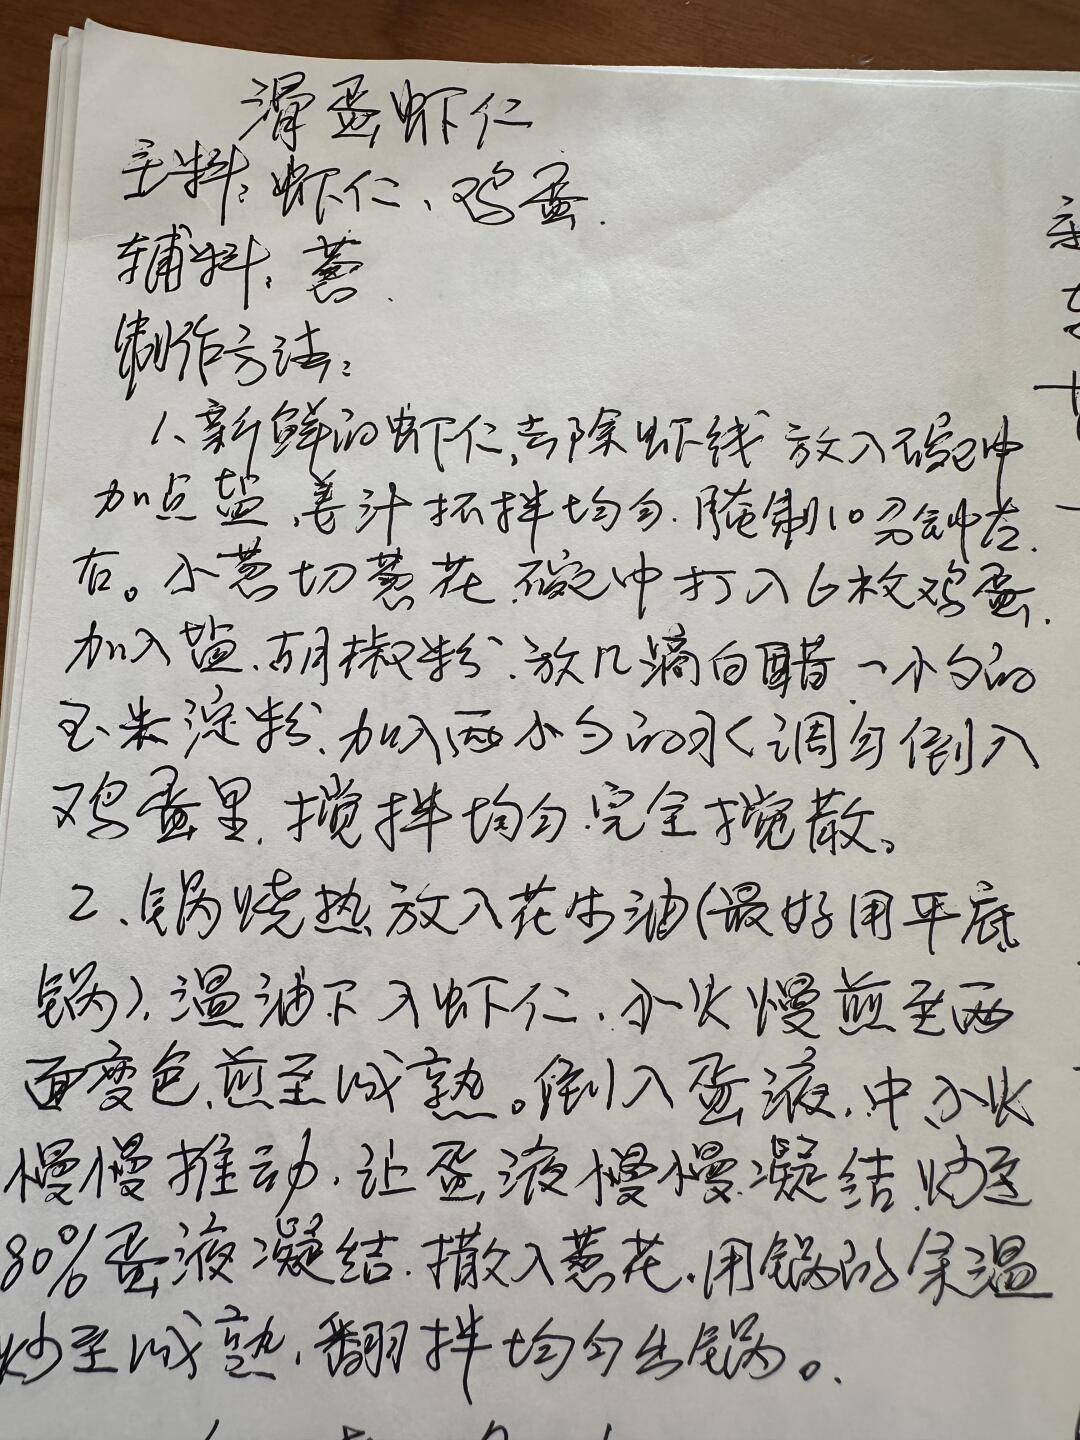 滑蛋虾仁
主料：虾仁、鸡蛋.
辅料：葱.
制作方法：
1、新鲜的虾仁,去除虾线 放入碗中
加点盐、姜汁抓拌均匀.腌制10分钟左
右。小葱切葱花.碗中打入6枚鸡蛋.
加入盐.胡椒粉.放几滴白醋.一小勺的
玉米淀粉.加入两小勺的水调匀倒入
鸡蛋里.搅拌均匀.完全搅散。
2、锅烧热放入花生油(最好用平底
锅),温油下入虾仁.小火慢煎至两
面变色、煎至成熟。倒入蛋液.中小火
慢慢推动.让蛋液慢慢凝结.炒至
80%蛋液凝结.撒入葱花.用锅的余温
炒至成熟.翻拌均匀出锅。